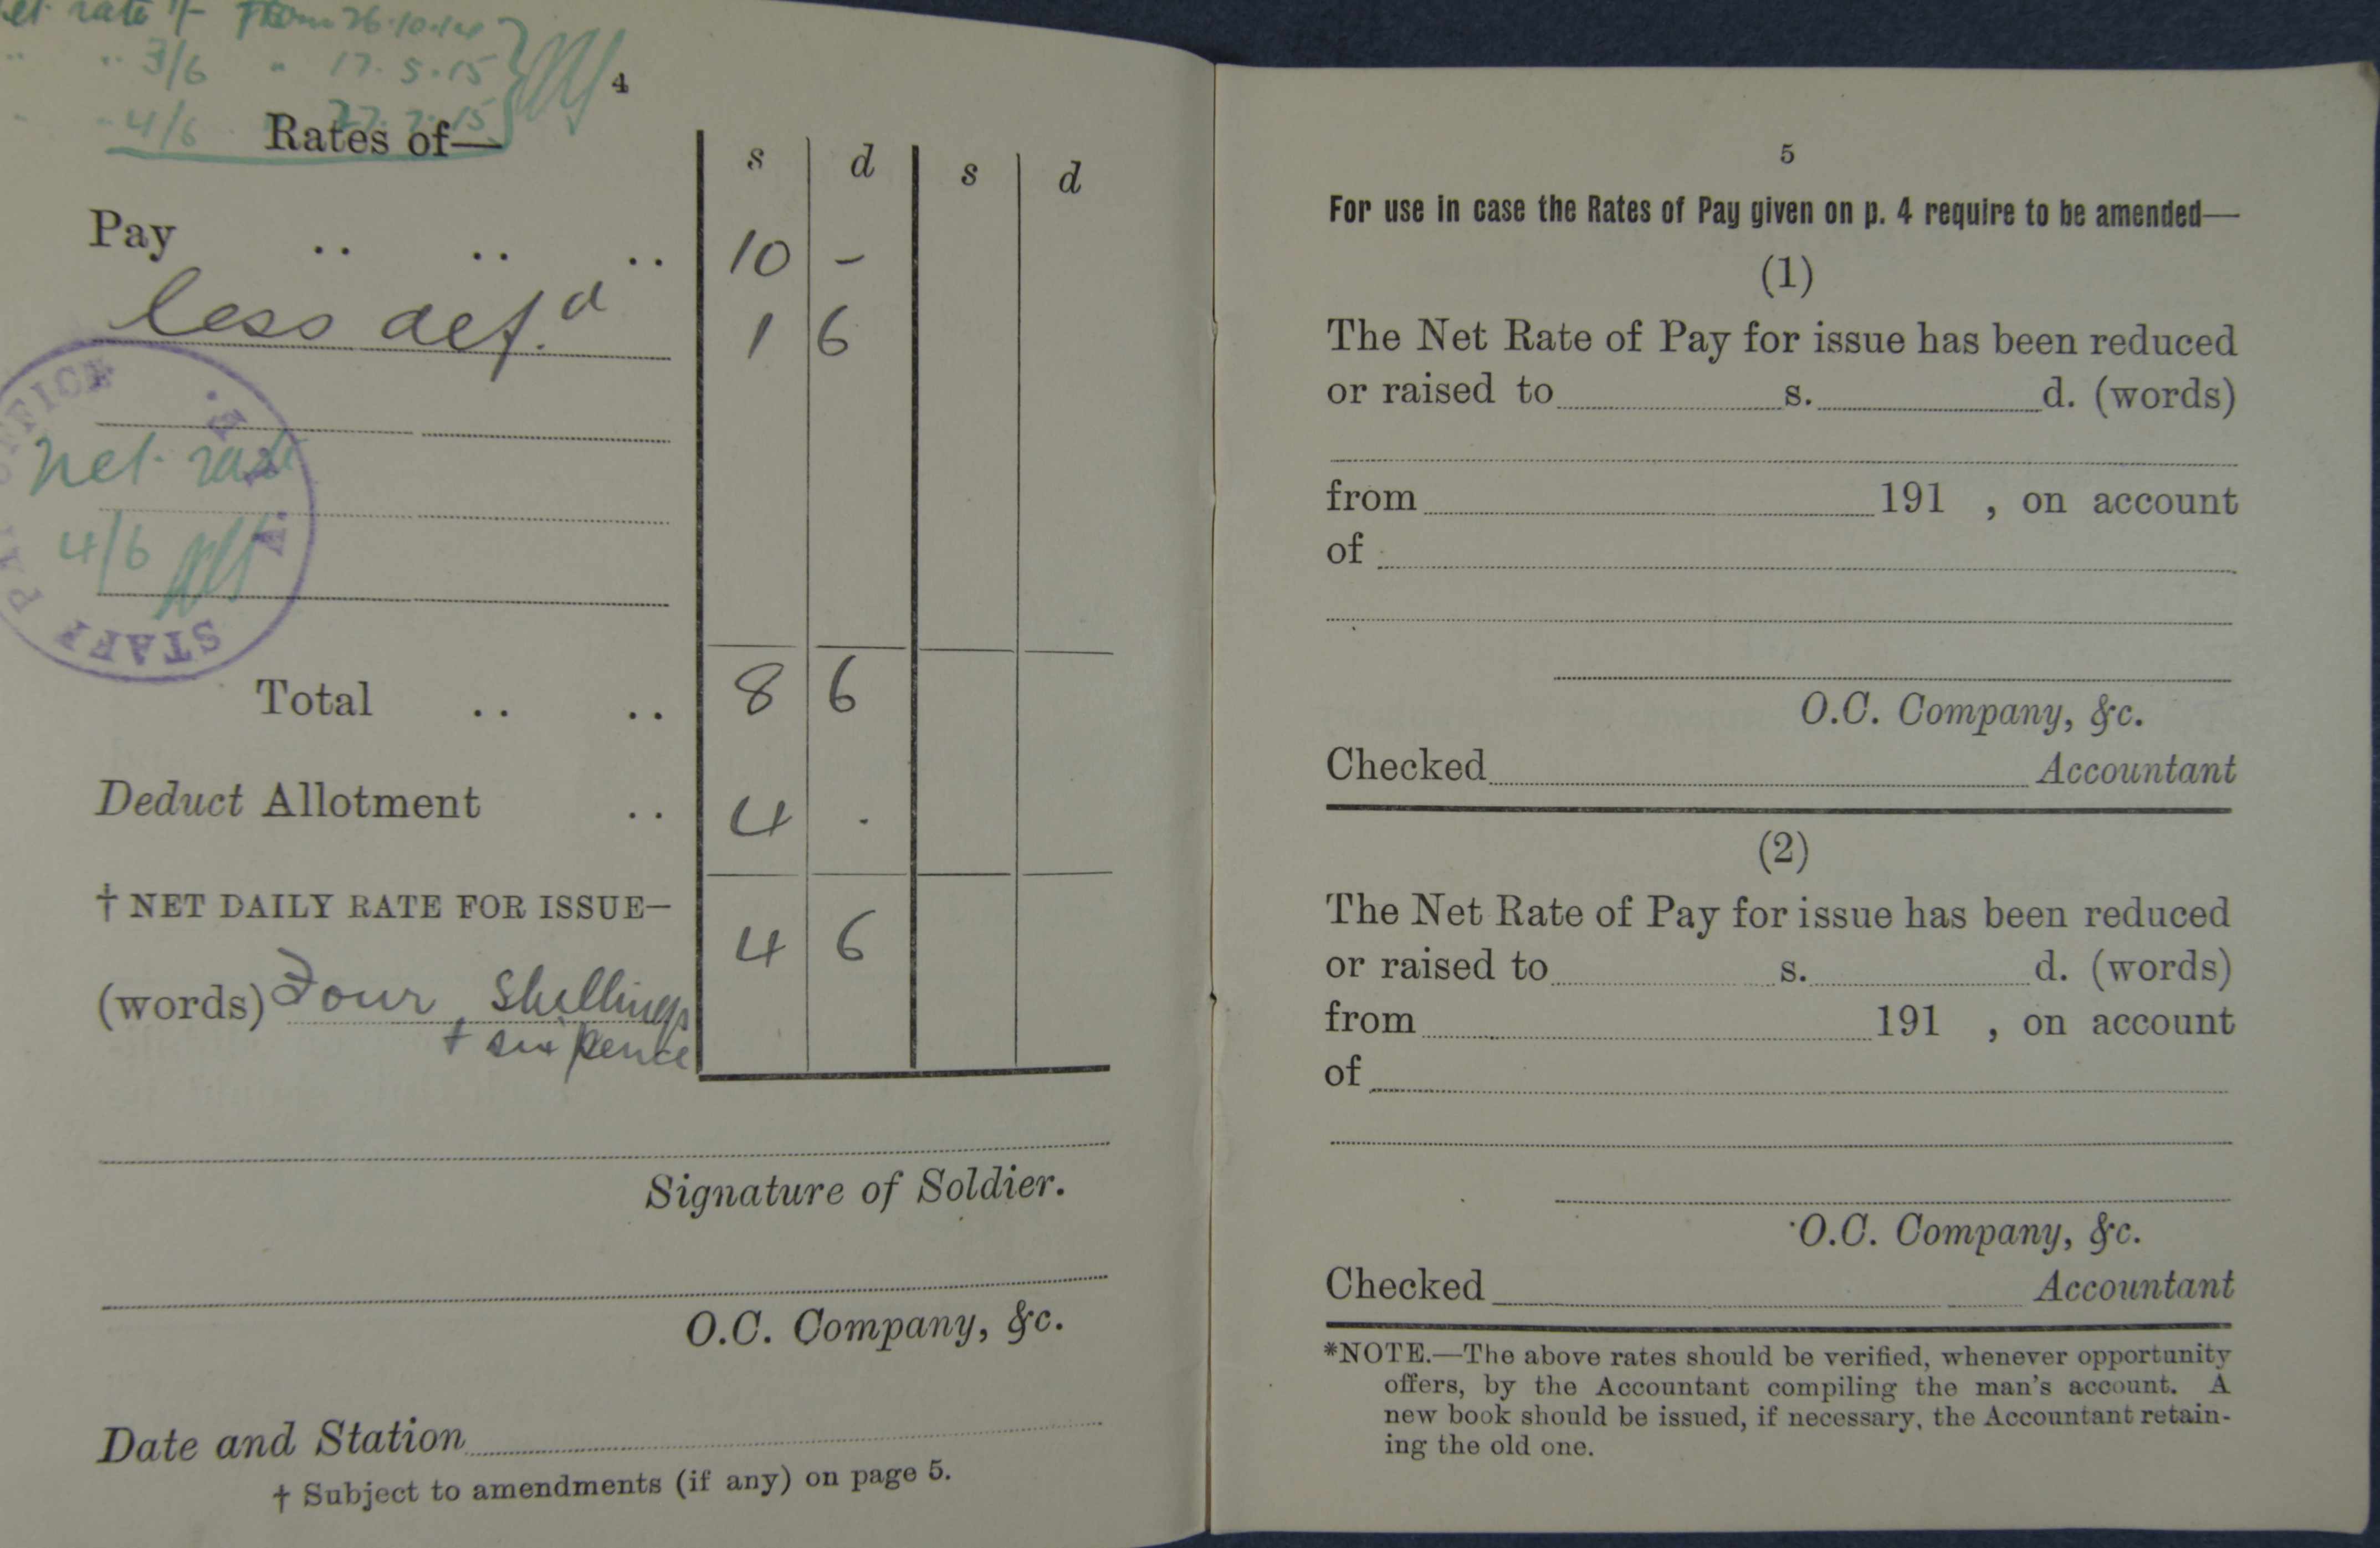 rate 1/- From 26.10.14
" " 3/6 " 17.5.15
" " 4/6 27.7.15
4
Rates of—
s d s d
Pay .. .. .. 10 -
less def.d 1 6
Net rate
4/6
STAFF PAY OFFICE
A.I.F.
Total .. .. 8 6
Deduct Allotment .. 4 .
† NET DAILY RATE FOR ISSUE— 4 6
(words) Four shillings
+ six pence
Signature of Soldier.
O.C. Company, &c.
Date and Station
† Subject to amendments (if any) on page 5.
5
For use in case the Rates of Pay given on p. 4 require to be amended—
(1)
The Net Rate of Pay for issue has been reduced
or raised to s. d. (words)
from 191 , on account
of
O.C. Company, &c.
Checked Accountant
(2)
The Net Rate of Pay for issue has been reduced
or raised to s. d. (words)
from 191 , on account
of
O.C. Company, &c.
Checked Accountant
*NOTE.—The above rates should be verified, whenever opportunity
offers, by the Accountant compiling the man's account. A
new book should be issued, if necessary, the Accountant retain-
ing the old one.